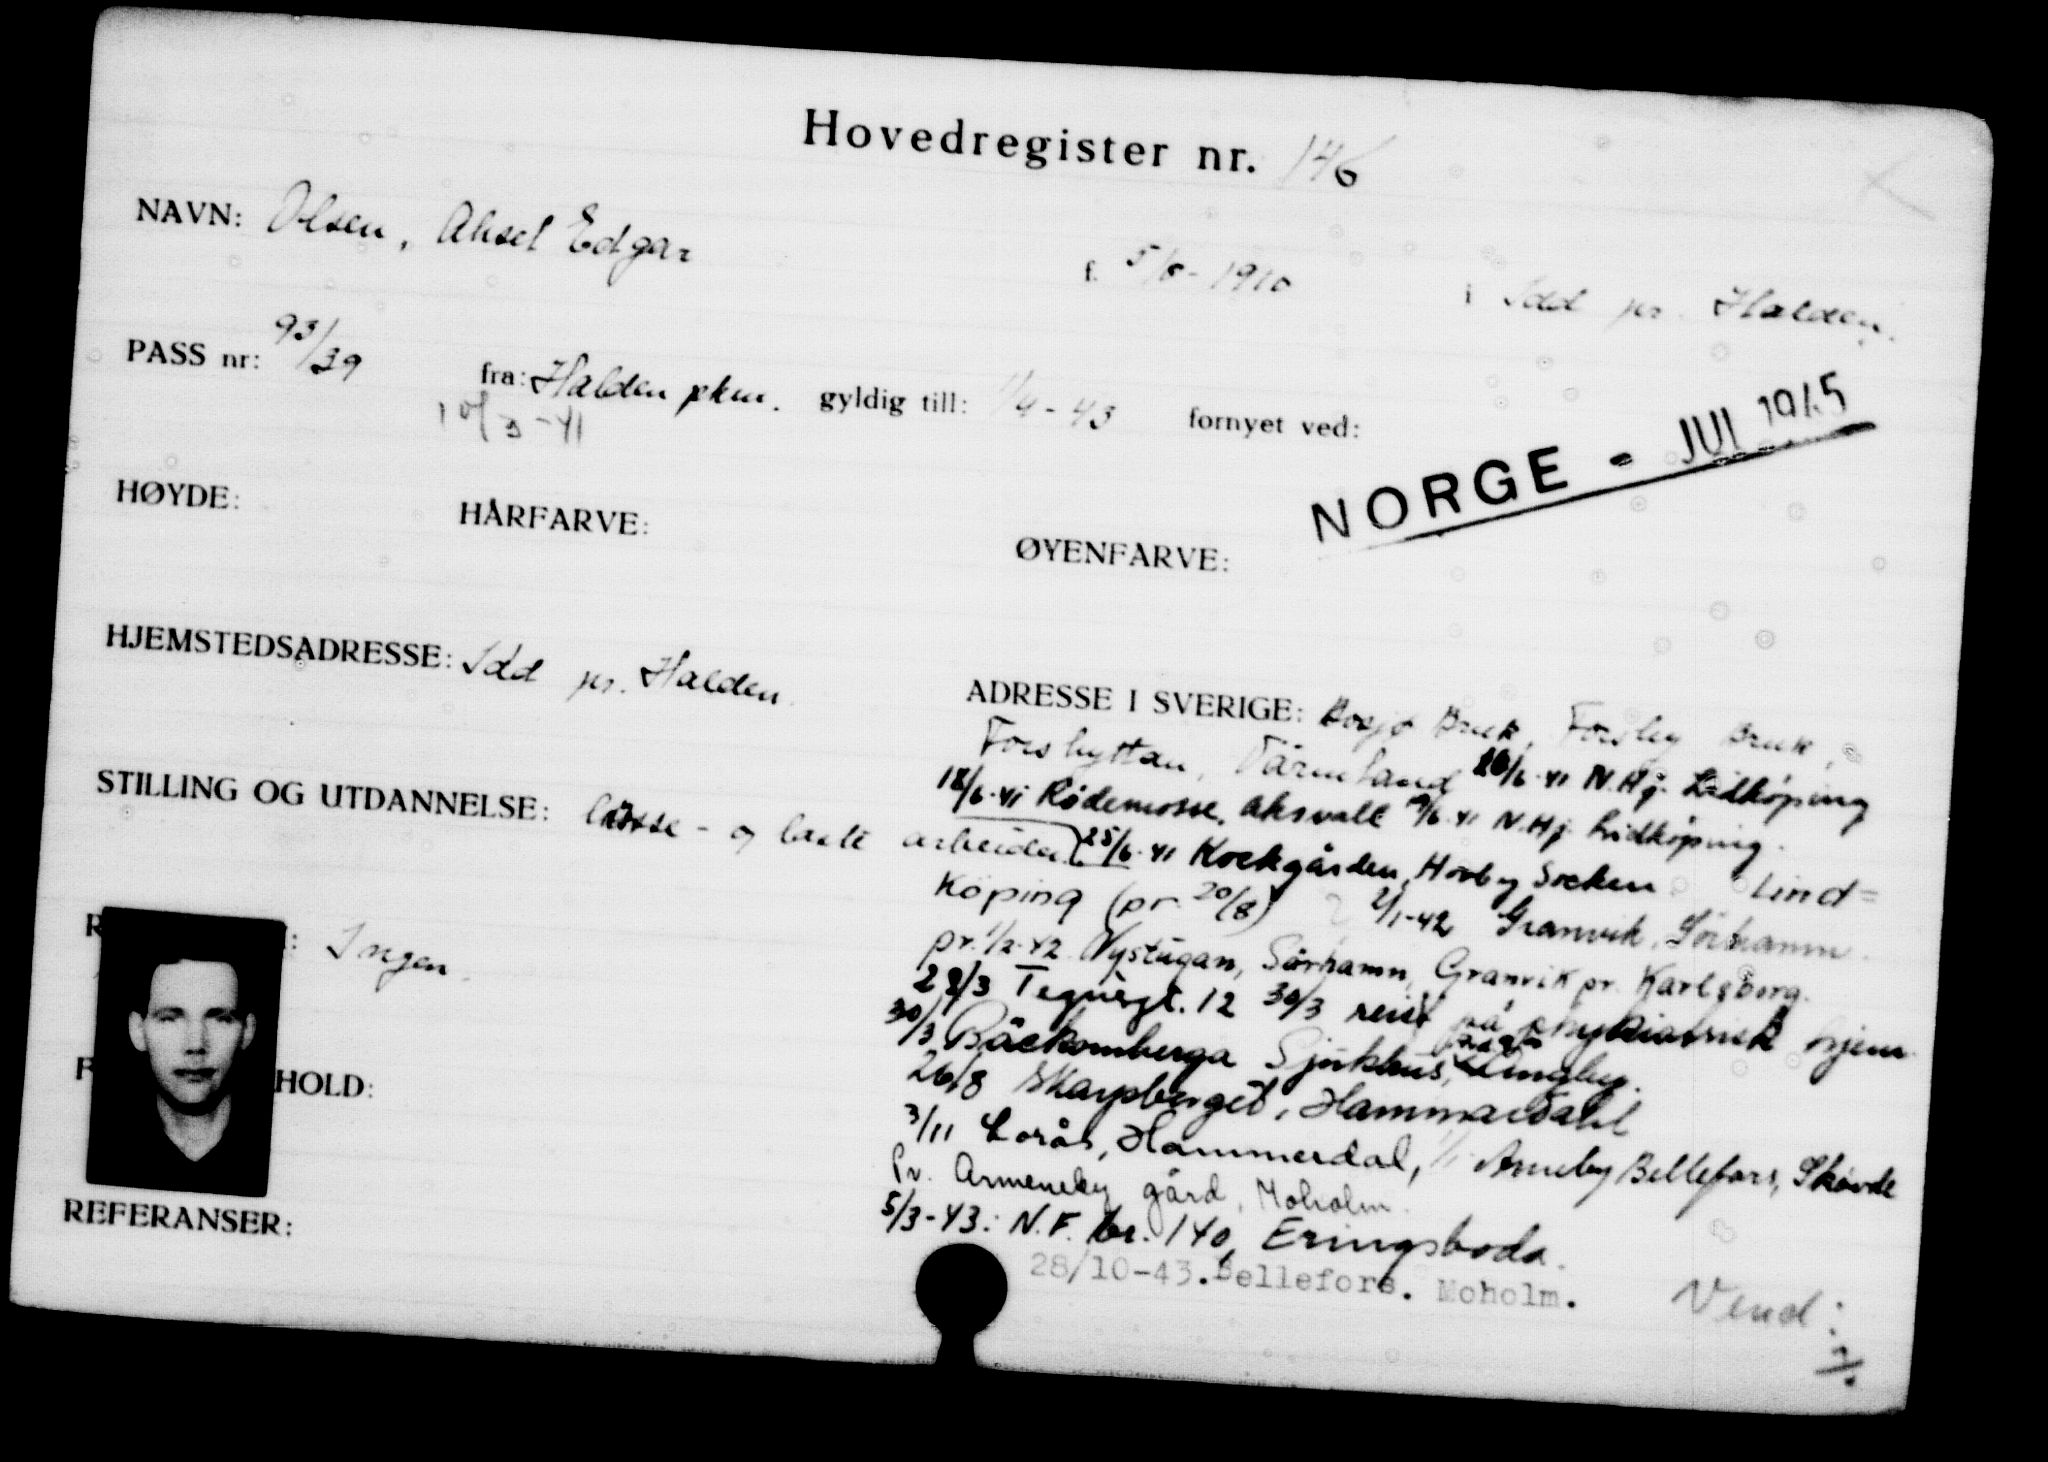 Hovedregister nr. 146
NAVN: Olsen, Aksel Edgar f. 5/8-1910 i Idd pr. Halden.
PASS nr: 93/39 fra: Halden pkm. gyldig till: 1/4-43 fornyet ved:
10/3-41
NORGE - JUL 1945
HØYDE: HÅRFARVE: ØYENFARVE:
HJEMSTEDSADRESSE: Idd pr. Halden.
ADRESSE I SVERIGE: Bosjø Bruk, Forsby Bruk,
Forshyttan, Värmland 16/6-41 N.Hj. Lidköping
18/6-41 Rödemosse, Aksvall 19/6-41 N.Hj. Lidköping.
STILLING OG UTDANNELSE: losse- og laste arbeider
25/6-41 Kockgården, Hovby Socken Lind=
köping (pr. 20/8) 2/1-42 Granvik, Sörhamn.
Ingen.
pr. 1/2-42 Nystugan, Sörhamn, Granvik pr. Karlsborg.
28/3 Tegnérgt. 12 30/3 reist på psykiatrisk hjem.
30/3 Bäckomberga Sjukhus,
HOLD:
26/8 Skarpberget, Hammerdahl
3/11 Lorås, Hammerdal, 1/1 Armeby Bellefors, Skövde
Pr. Armeneby gård, Moholm.
REFERANSER:
5/3-43: N.F. br. 140, Eringsboda.
28/10-43. Bellefors. Moholm.
Vend: